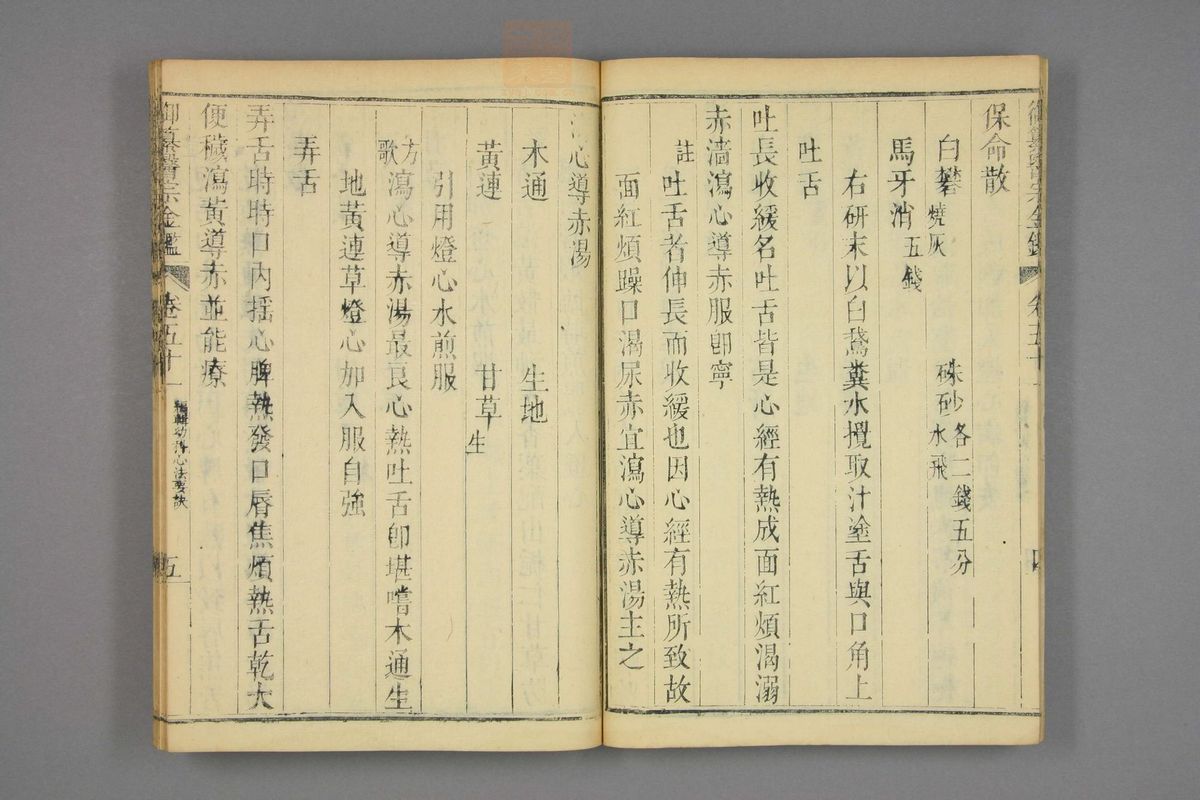 保命散
白礬燒灰　硃砂水飛各二錢五分
馬牙消五錢
右研末以白鵞糞水攪取汁塗舌與口角上
吐舌
吐長收緩名吐舌皆是心經有熱成面紅煩渴溺
赤濇瀉心導赤服卽寧
註吐舌者伸長而收緩也因心經有熱所致故
面紅煩躁口渴尿赤宜瀉心導赤湯主之
心導赤湯
木通　生地
黃連　甘草生
引用燈心水煎服
方歌瀉心導赤湯最良心熱吐舌卽堪嚐木通生
地黃連草燈心加入服自強
弄舌
弄舌時時口內搖心脾熱發口唇焦煩熱舌乾大
便穢瀉黃導赤並能療
御纂醫宗金鑑　卷五十一　編輯幼科心法要訣　五